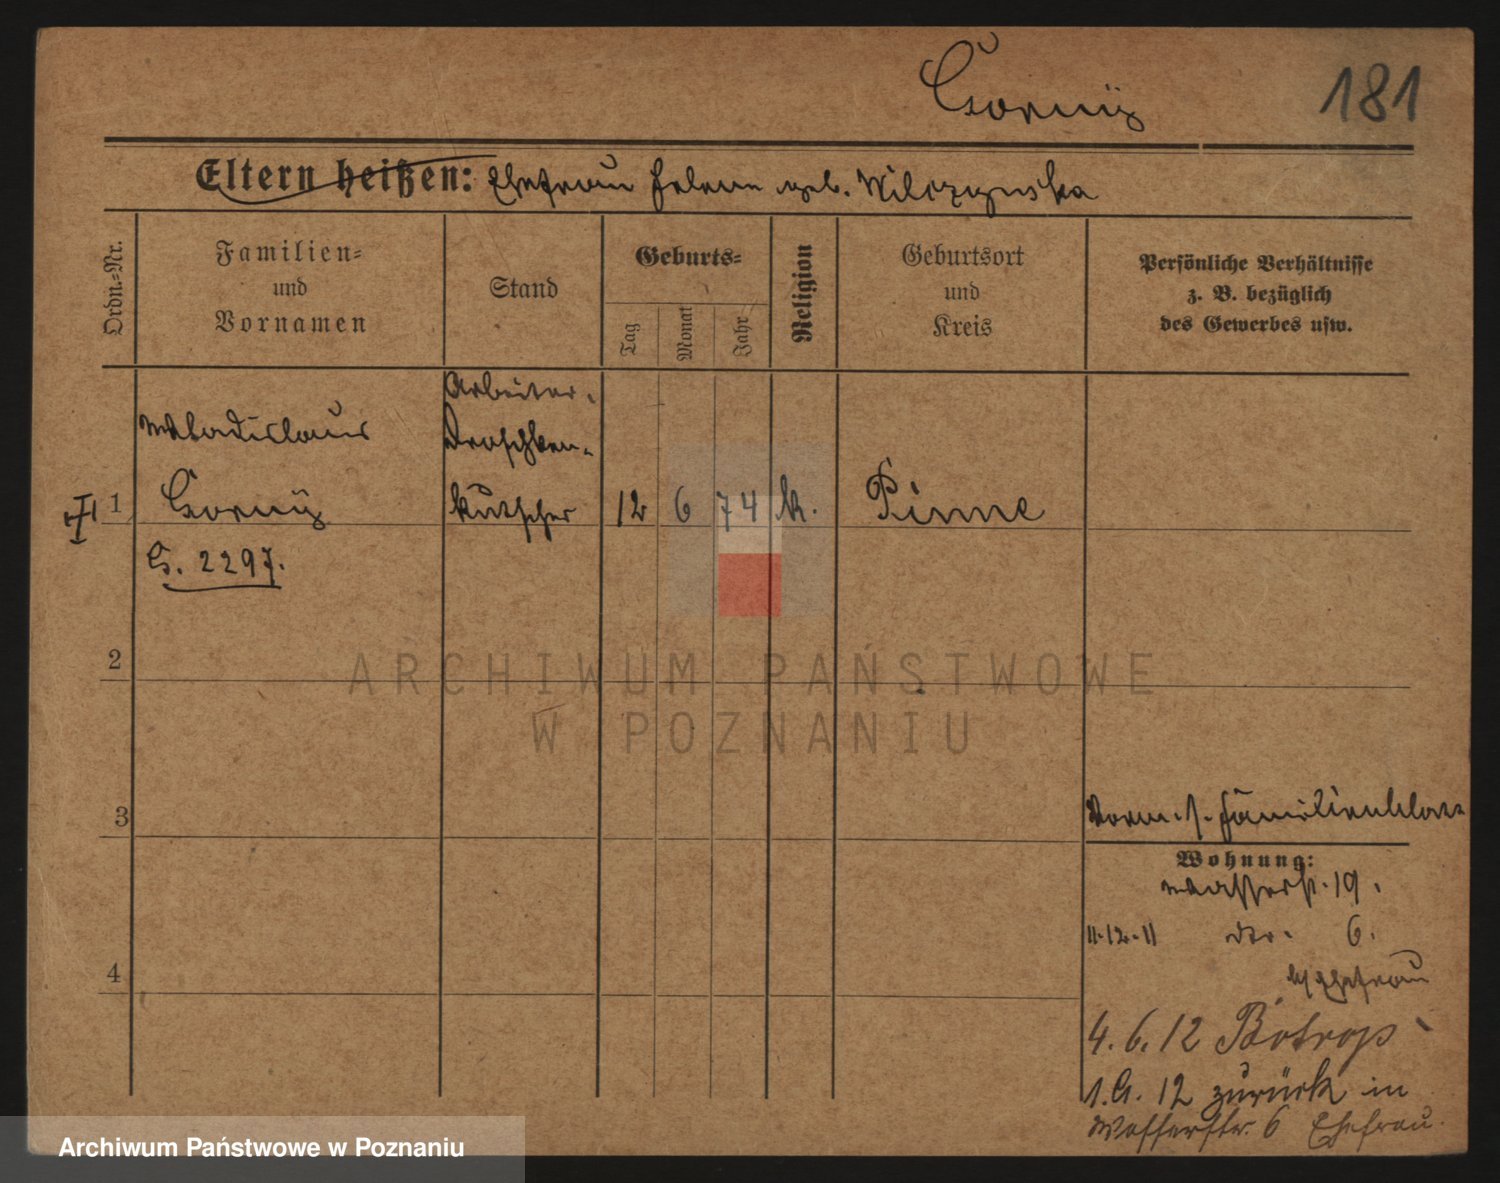 Czorny
181
Eltern heißen: Ehefrau Helene geb. Wilczynska
Ordn.-Nr.
Familien-
und
Vornamen
Stand
Geburts-
Tag
Monat
Jahr
Religion
Geburtsort
und
Kreis
Persönliche Verhältnisse
z. B. bezüglich
des Gewerbes usw.
Arbeiter.
Wladislaus
Droschken-
1
kutscher
12 6 74 k.
Pinne
G. 2297.
2
3
4
Wohnung:
Wasserstr. 19.
11.12.11 6.
Ehefrau
4. 6. 12 Botrop
12 zurück in
Wasserstr. 6 Ehefrau.
ARCHIWUM PAŃSTWOWE
W POZNANIU
Archiwum Państwowe w Poznaniu